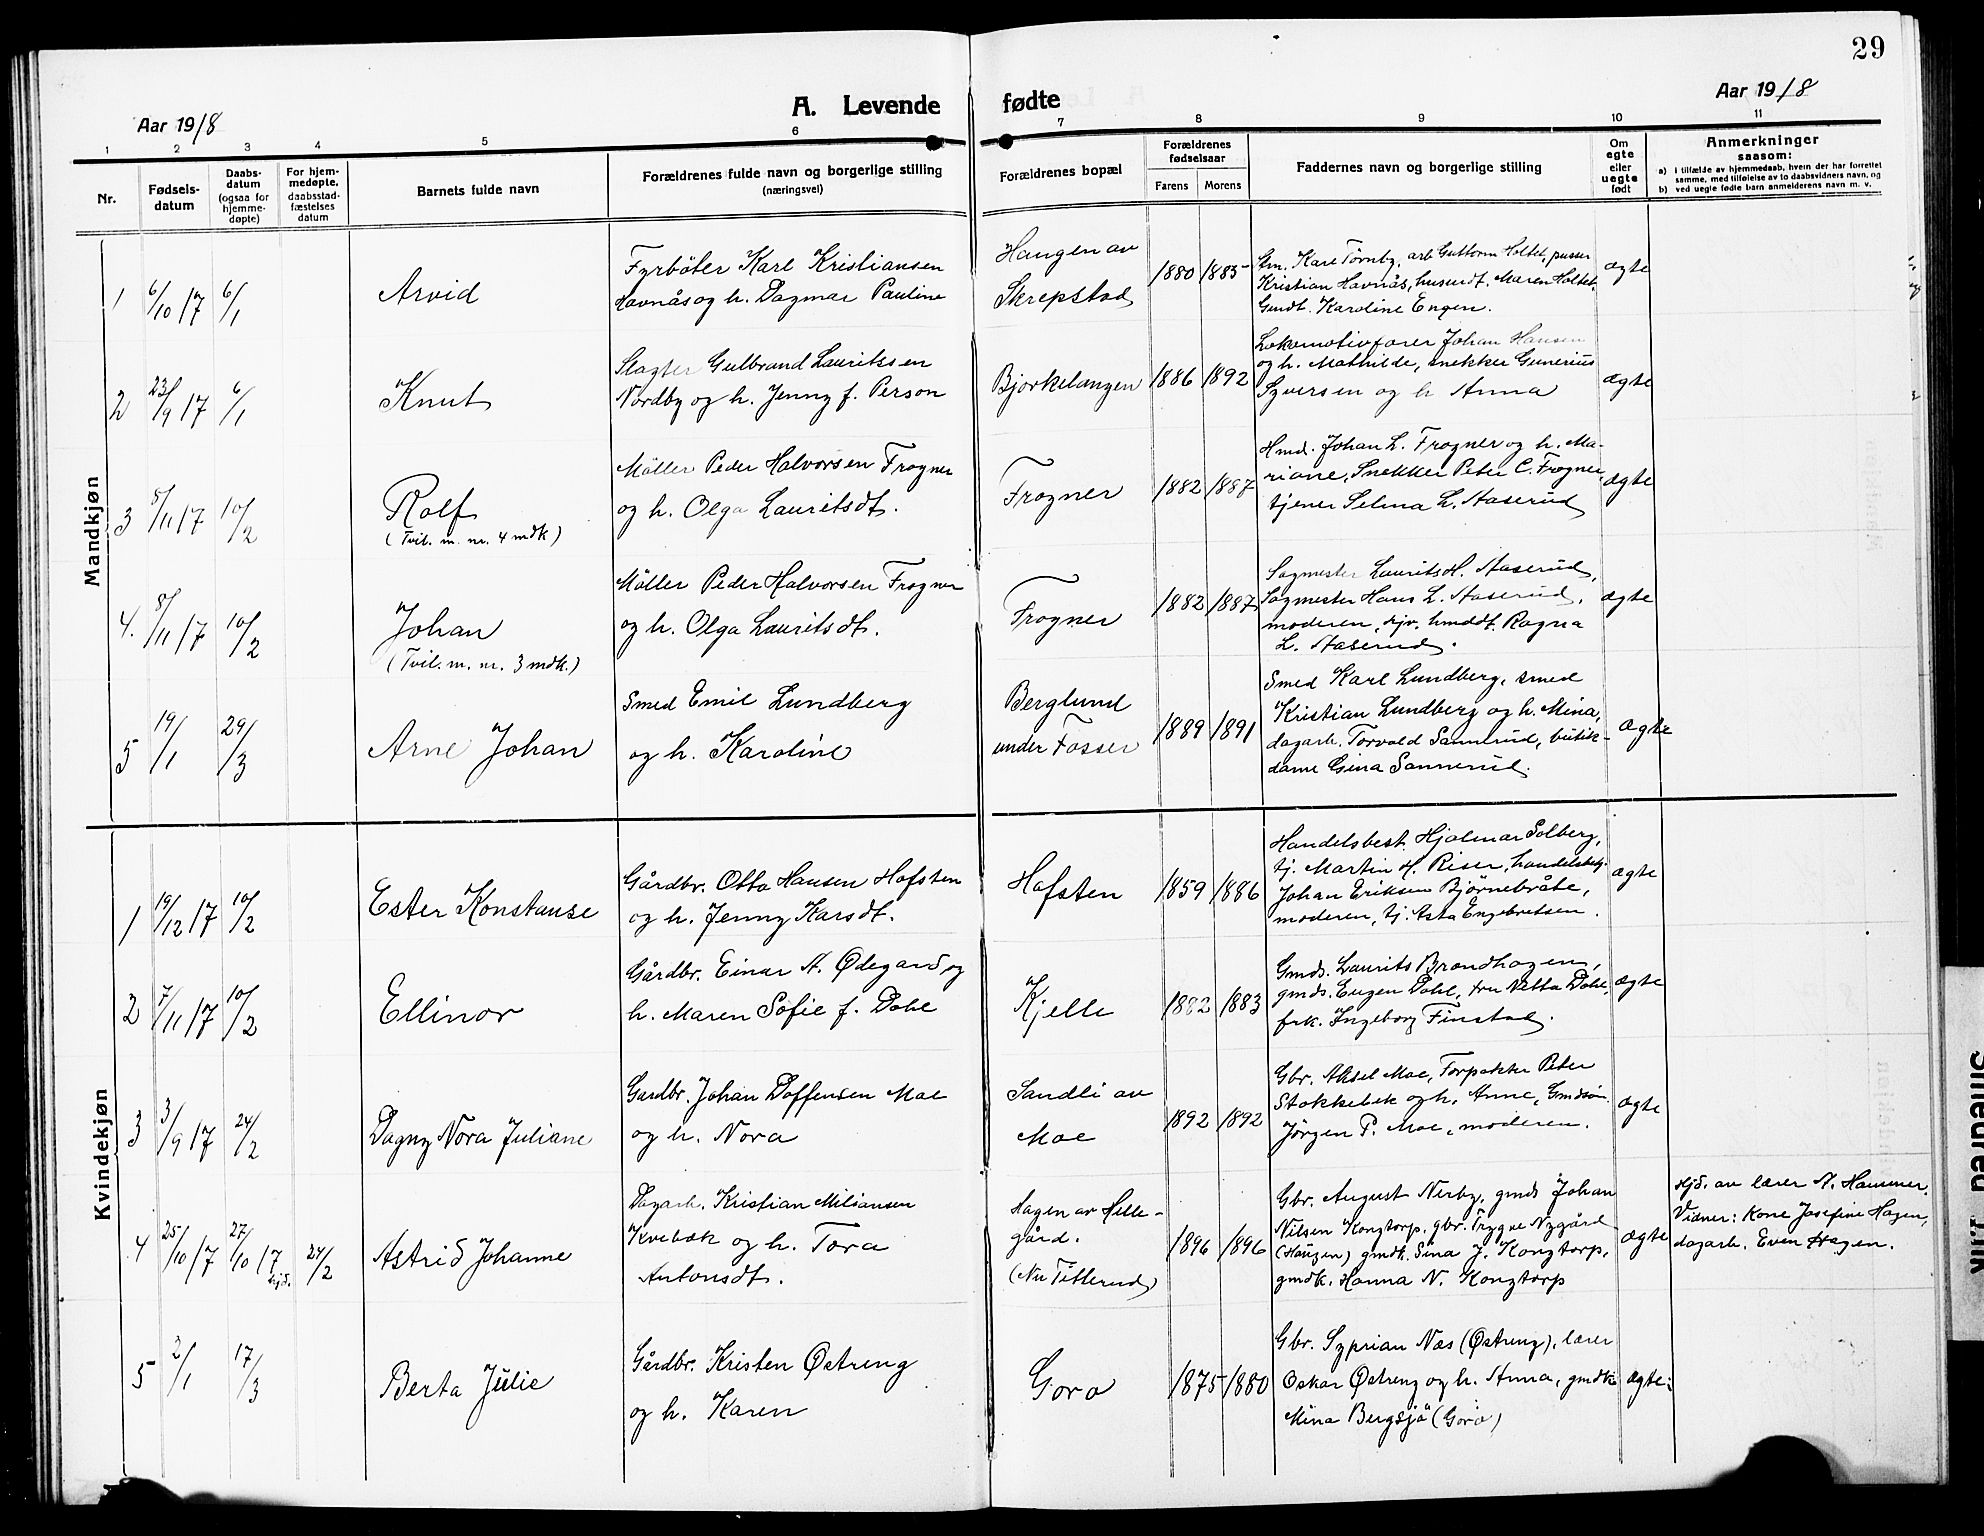 29
Aar 1918
A. Levende fødte
Aar 1918
1 2 3 4 5 6 7 8 9 10 11
Nr.
Fødsels-
datum
Daabs-
datum
(ogsaa for
hjemme-
døpte)
For hjem-
medøpte,
daabsstad-
fæstelses
datum
Barnets fulde navn
Forældrenes fulde navn og borgerlige stilling
(næringsvei)
Forældrenes bopæl
Forældrenes
fødselsaar
Farens Morens
Faddernes navn og borgerlige stilling
Om
egte
eller
uegte
født
Anmerkninger
saasom:
a) i tilfælde av hjemmedaab, hvem der har forrettet
samme, med tilføielse av to daabsvidners navn, og
b) ved uegte fødte barn anmelderens navn m. v.
Mandkjøn
1 6/10 17 6/1
Arvid
Fyrböter Karl Kristiansen
Havnås og h. Dagmar Pauline
Haugen av
Skrepstad
1880 1885
Em. Kare Törnby, arb. Guttorm Holtet, pusser
Kristian Havnås, husmdt. Maren Holtet,
Gmdt. Karoline Engen.
ægte
2 23/9 17 6/1
Knut
Slagter Gulbrand Lauritssen
Nordby og h. Jenny f. Person
Bjørkelangen
1886 1892
Lokomotivfører Johan Hansen
og h. Mathilde, snekker Gunerius
Syversen og h Anna
ægte
3 8/11 17 10/2
Rolf
(Tvil. m. nr. 4 mdk)
Möller Peder Halvorsen Frogner
og h. Olga Lauritsdt.
Frogner
1882 1887
Hmd. Johan L. Frogner og h. Ma-
riane, Snekker Peter C. Frogner,
tjener Selma L. Aaserud
ægte
4. 8/11 17 10/2
Johan
(Tvil. m. nr. 3 mdk.)
Möller Peder Halvorsen Frogner
og h. Olga Lauritsdt.
Frogner
1882 1887
Sagmester Laurits H. Aaserud,
Sagmester Hans L. Aaserud,
moderen, hmddt. Ragna
L. Aaserud.
ægte
5 19/1 29/3
Arne Johan
Smed Emil Lundberg
og h. Karoline
Berglund
under Fosser
1889 1891
Smed Karl Lundberg, smed
Kristian Lundberg og h. Mina,
dagarb. Torvald Sannerud, butik-
dame Gina Sannerud.
ægte
Kvindekjøn
1 19/12 17 10/2
Ester Konstanse
Gårdbr. Otto Hansen Hofsten
og h. Jenny Larsdt.
Hofsten
1859 1886
Handelsbest. Hjalmar Solberg,
tj. Martin H. Riser, handelsbetj.
Johan Eriksen Björnebråte,
moderen, tj. Asta Engebretsen.
ægte
2 7/11 17 10/2
Ellinor
Gårdbr. Einar A. Ødegard og
h. Maren Sofie f. Dahl
Kjelle
1882 1883
Gmds. Laurits Brandhagen,
gmds. Eugen Dahl, fru Netta Dahl,
frk. Ingeborg Finstad.
ægte
3 3/9 17 24/2
Dagny Nora Juliane
Gardbr. Johan Doffensen Moe
og h. Nora
Sandli av
Moe
1892 1892
Gbr. Aksel Moe, Forpakter Peter
Stokkebek og h. Anne, Gmdsön
Jörgen P. Moe, moderen.
ægte
4 25/10 17 27/10 17 hjd. 24/2
Astrid Johanne
Dagarb. Kristian Miliansen
Kvebæk og h. Tora
Antonsdt.
Hagen av Helle-
gård.
(Nu Titterud)
1896 1896
Gbr. August Nerby, gmds Johan
Nilsen Kongtorp, gbr. Trygve Nygård
(Haugen) gmdk. Sina J. Kongtorp,
gmdk. Hanna N. Kongtorp
ægte
Hjd. av lærer N. Hammer.
Vidner: Kone Josefine Hagen,
dagarb. Even Hagen.
5 2/1 17/3
Berta Julie
Gårdbr. Kristen Østreng
og h. Karen
Goro
1875 1880
Gbr. Syprian Næs (Østreng), lærer
Oskar Østreng og h. Anna, gmdk
Mina Bergsjö (Goro)
ægte.